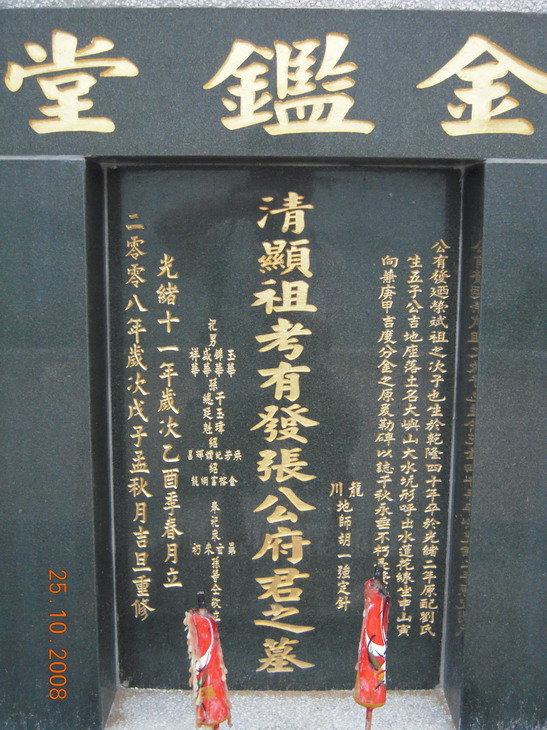 金鑑堂
公有發廼榮斌祖之次子也生於乾隆四十年卒於光緒二年原配劉氏
生五子公吉地座落土名大嶼山大水坑形呼出水蓮花線坐申山寅
向兼庚甲吉度分金之原爰勒碑以誌千秋永垂不朽
龍川地師胡一強定針
清顯祖考有發張公府君之墓
祀男
玉華
錦華
威華
祥華
孫
光緒十一年歲次乙酉季春月立
二零零八年歲次戊子孟秋月吉旦重修
25.10.2008